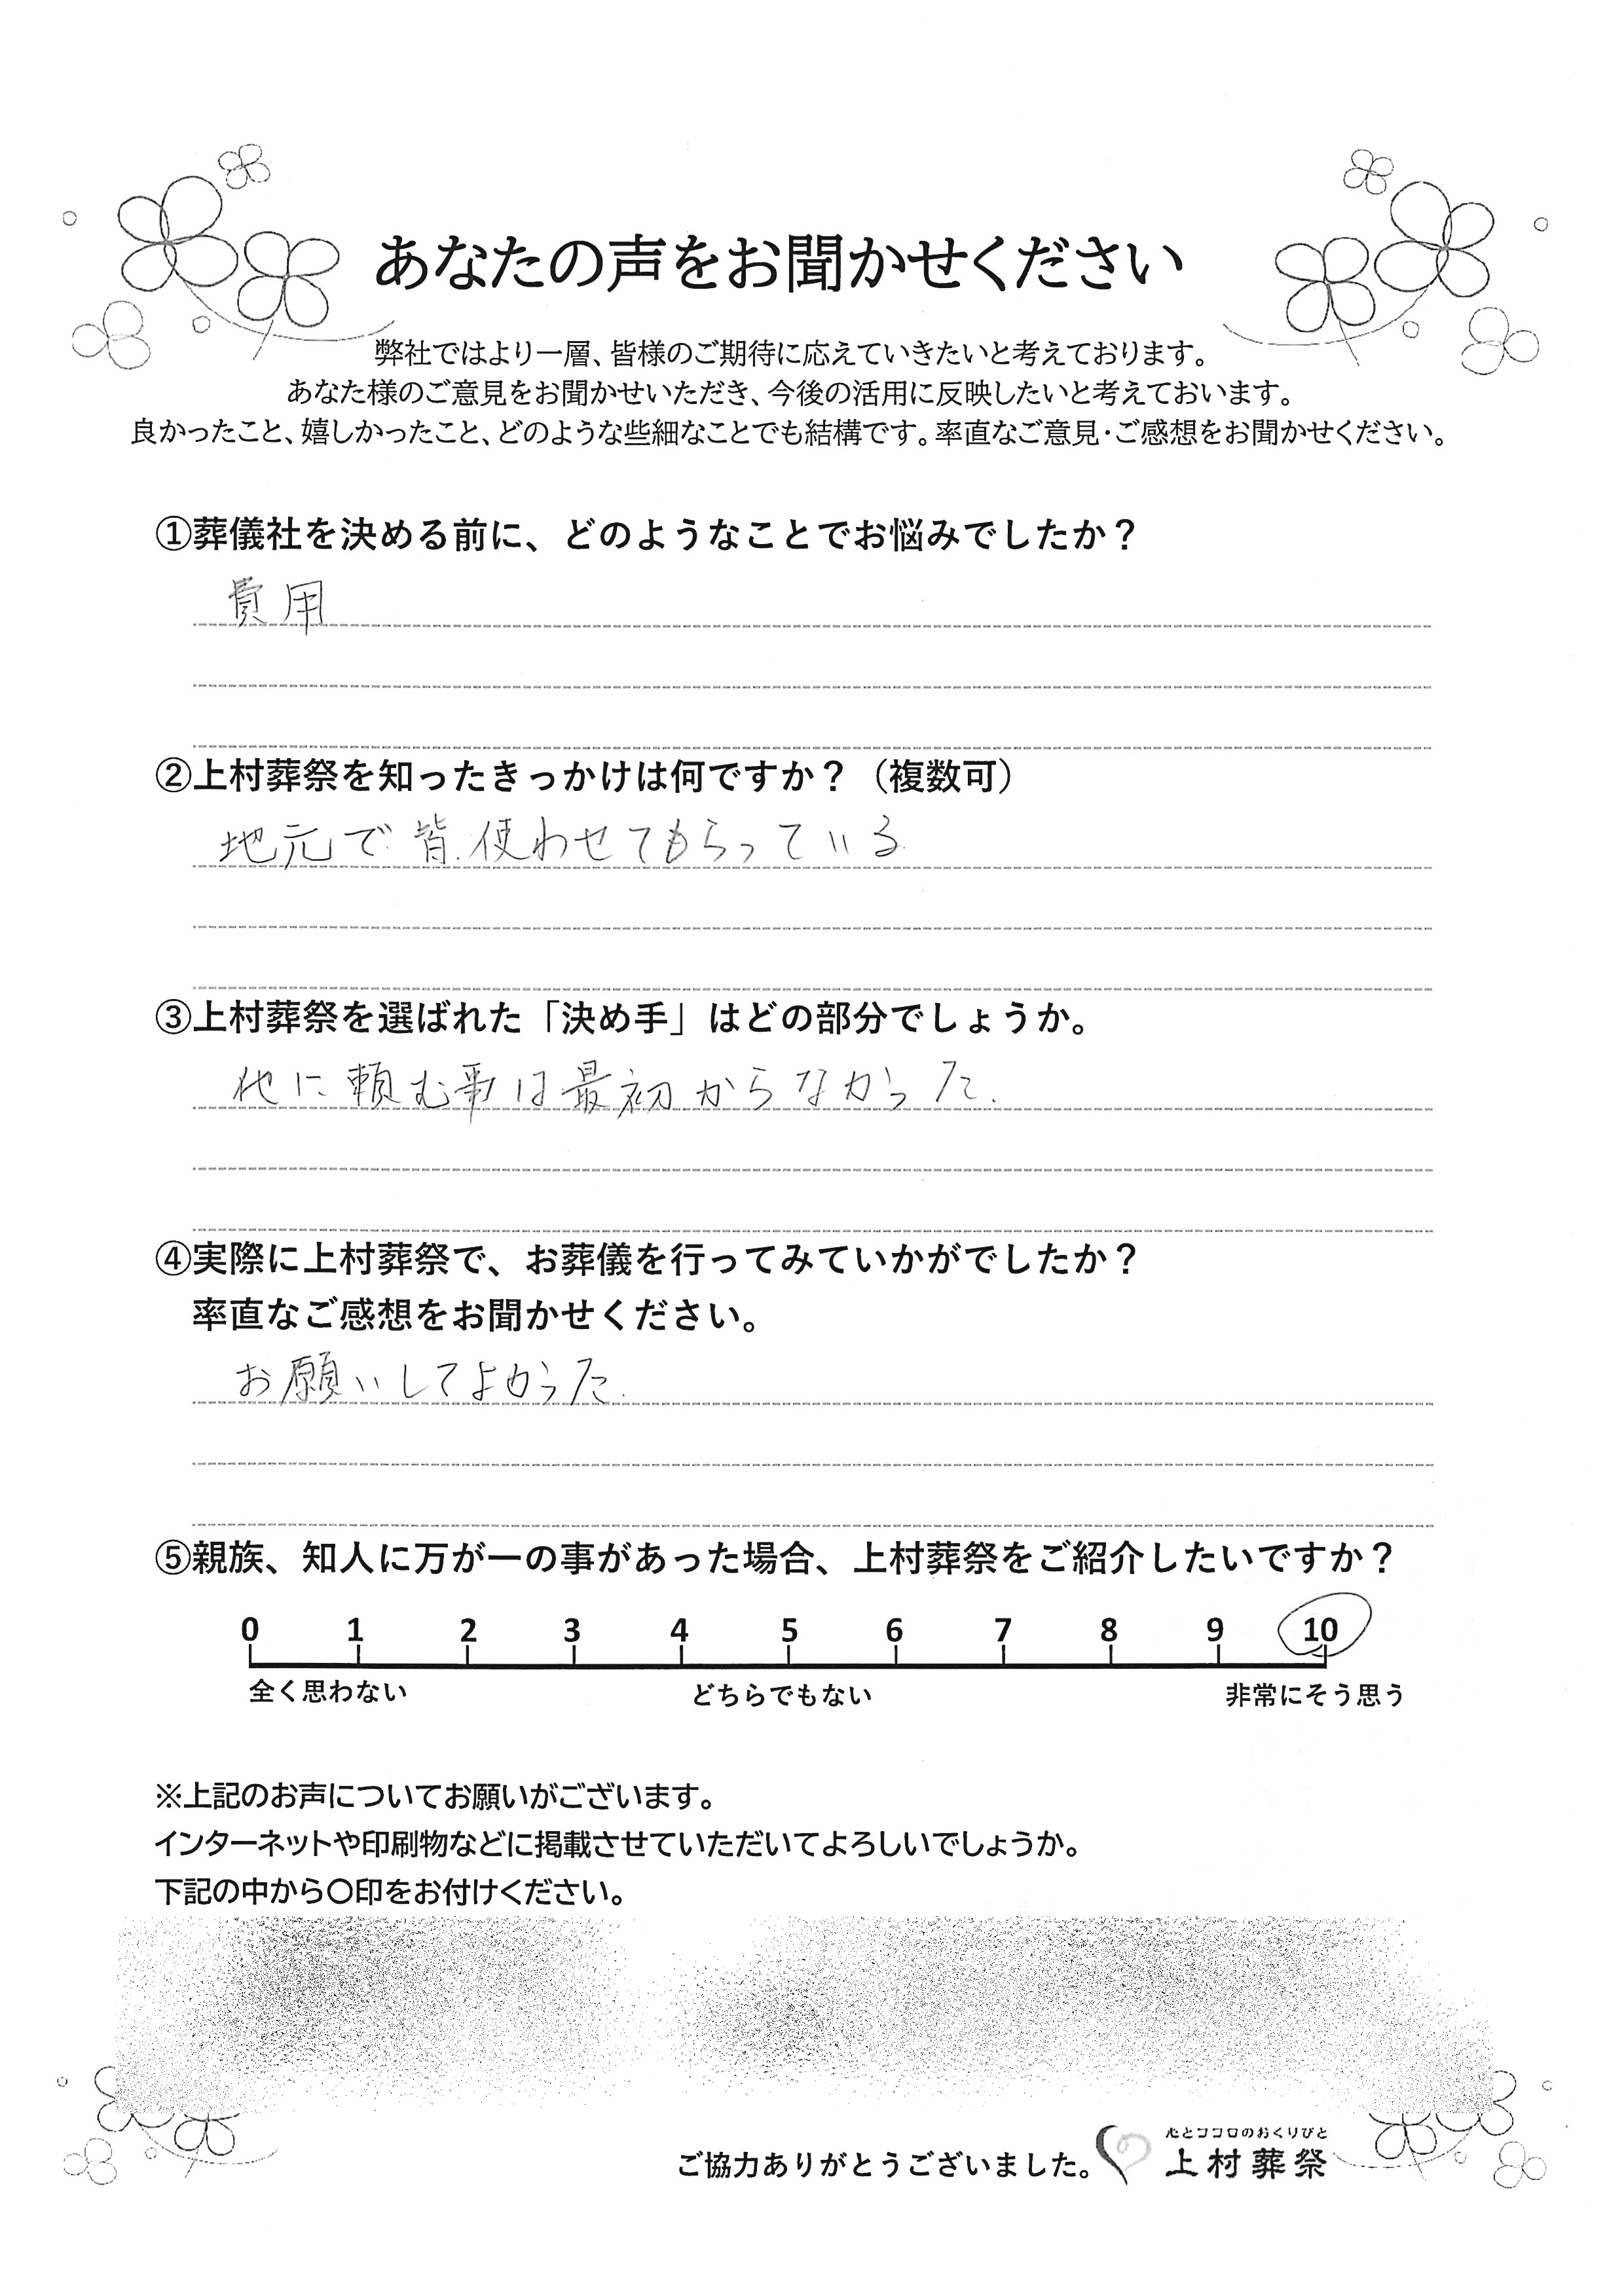 あなたの声をお聞かせください
弊社ではより一層、皆様のご期待に応えていきたいと考えております。
あなた様のご意見をお聞かせいただき、今後の活用に反映したいと考えておいます。
良かったこと、嬉しかったこと、どのような些細なことでも結構です。率直なご意見・ご感想をお聞かせください。
①葬儀社を決める前に、どのようなことでお悩みでしたか？
費用
②上村葬祭を知ったきっかけは何ですか？（複数可）
地元で皆使わせてもらっている
③上村葬祭を選ばれた「決め手」はどの部分でしょうか。
他に頼む事は最初からなかった.
④実際に上村葬祭で、お葬儀を行ってみていかがでしたか？
率直なご感想をお聞かせください。
お願いしてよかった.
⑤親族、知人に万が一の事があった場合、上村葬祭をご紹介したいですか？
0 1 2 3 4 5 6 7 8 9 10
全く思わない どちらでもない 非常にそう思う
※上記のお声についてお願いがございます。
インターネットや印刷物などに掲載させていただいてよろしいでしょうか。
下記の中から〇印をお付けください。
心とココロのおくりびと
ご協力ありがとうございました。 上村葬祭